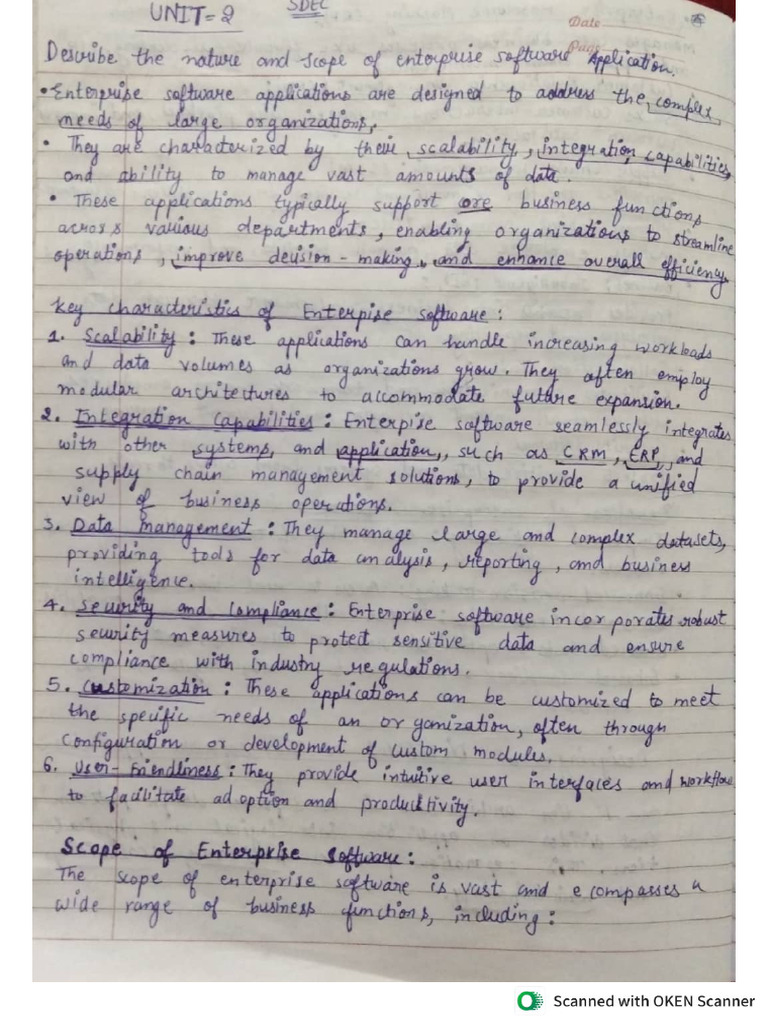 UNIT = 2
SDEC
Date
Page
Describe the nature and scope of enterprise software Application.
• Enterprise software applications are designed to address the complex
needs of large organizations,
• They are characterized by their scalability, integration capabilities,
and ability to manage vast amounts of data.
• These applications typically support core business functions
across various departments, enabling organizations to streamline
operations, improve decision-making, and enhance overall efficiency.
Key characteristics of Enterpise software:
1. Scalability: These applications can handle increasing workloads
and data volumes as organizations grow. They often employ
modular architectures to accommodate future expansion.
2. Integration Capabilities: Enterpise software seamlessly integrates
with other systems, and application, such as CRM, ERP, and
supply chain management solutions, to provide a unified
view of business operations.
3. Data management: They manage large and complex datasets,
providing tools for data analysis, reporting, and business
intelligence.
4. Security and Compliance: Enterprise software incorporates robust
security measures to protect sensitive data and ensure
compliance with industry regulations.
5. Customization: These applications can be customized to meet
the specific needs of an organization, often through
configuration or development of custom modules.
6. User-Friendliness: They provide intuitive user interfaces and workflow
to facilitate adoption and productivity.
Scope of Enterprise Software:
The scope of enterprise software is vast and ecompasses a
wide range of business functions, including:
Scanned with OKEN Scanner